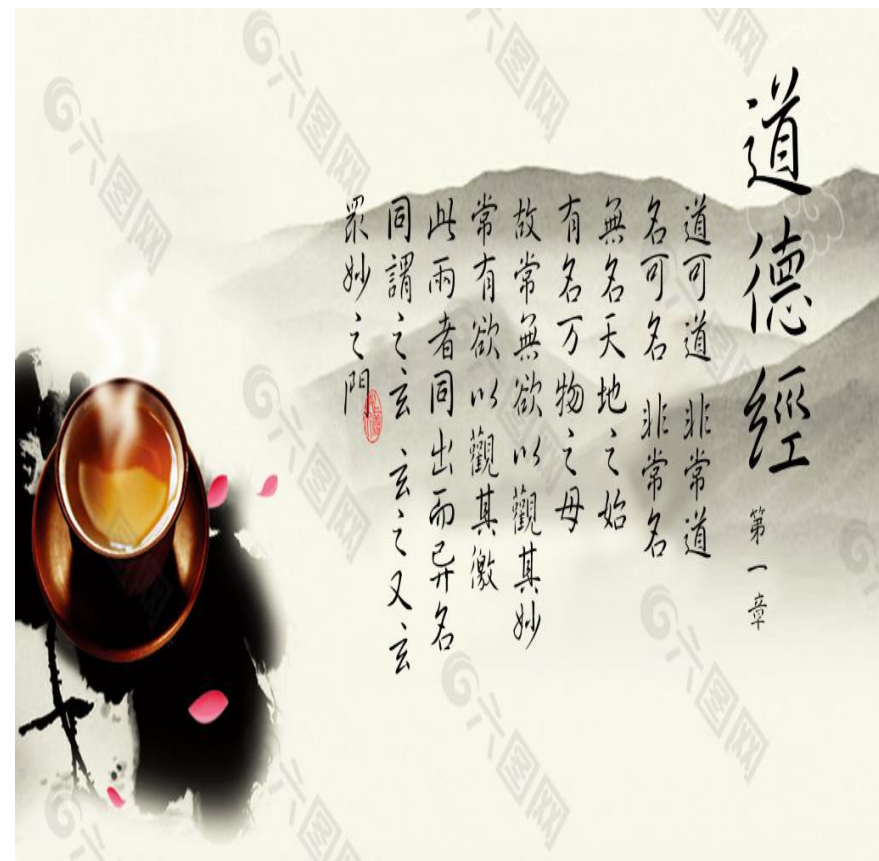 道德經
第一章
道可道 非常道
名可名 非常名
無名天地之始
有名万物之母
故常無欲以觀其妙
常有欲以觀其徼
此兩者同出而异名
同謂之玄 玄之又玄
眾妙之門
六图网